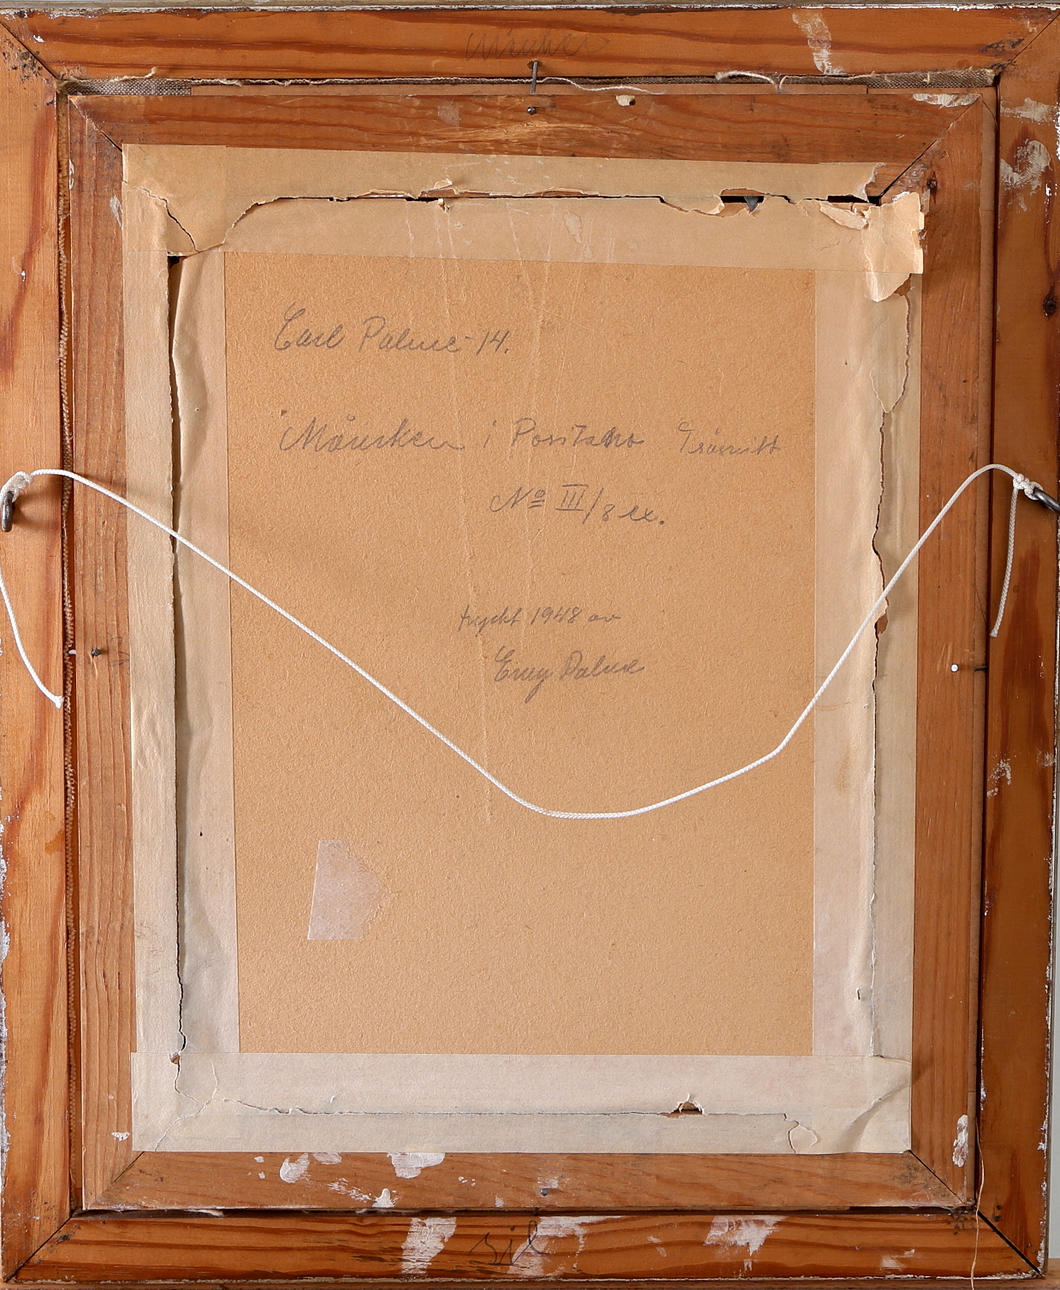 Carl Palme -14.
Månsken i Positano Träsnitt
No III/8 ex.
tryckt 1948 av
Emy Palme